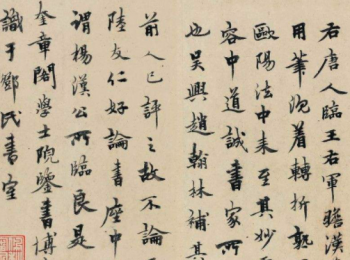 右唐人臨王右軍瞻漢
用筆沉着轉折熟
歐陽法中来至其妙
容中道誠書家所
也吳興趙翰林補其
前人已評之故不論
陸友仁好論書座中
謂楊漢公所臨良是
奎章閣學士院鑒書博
識于鄧氏書室